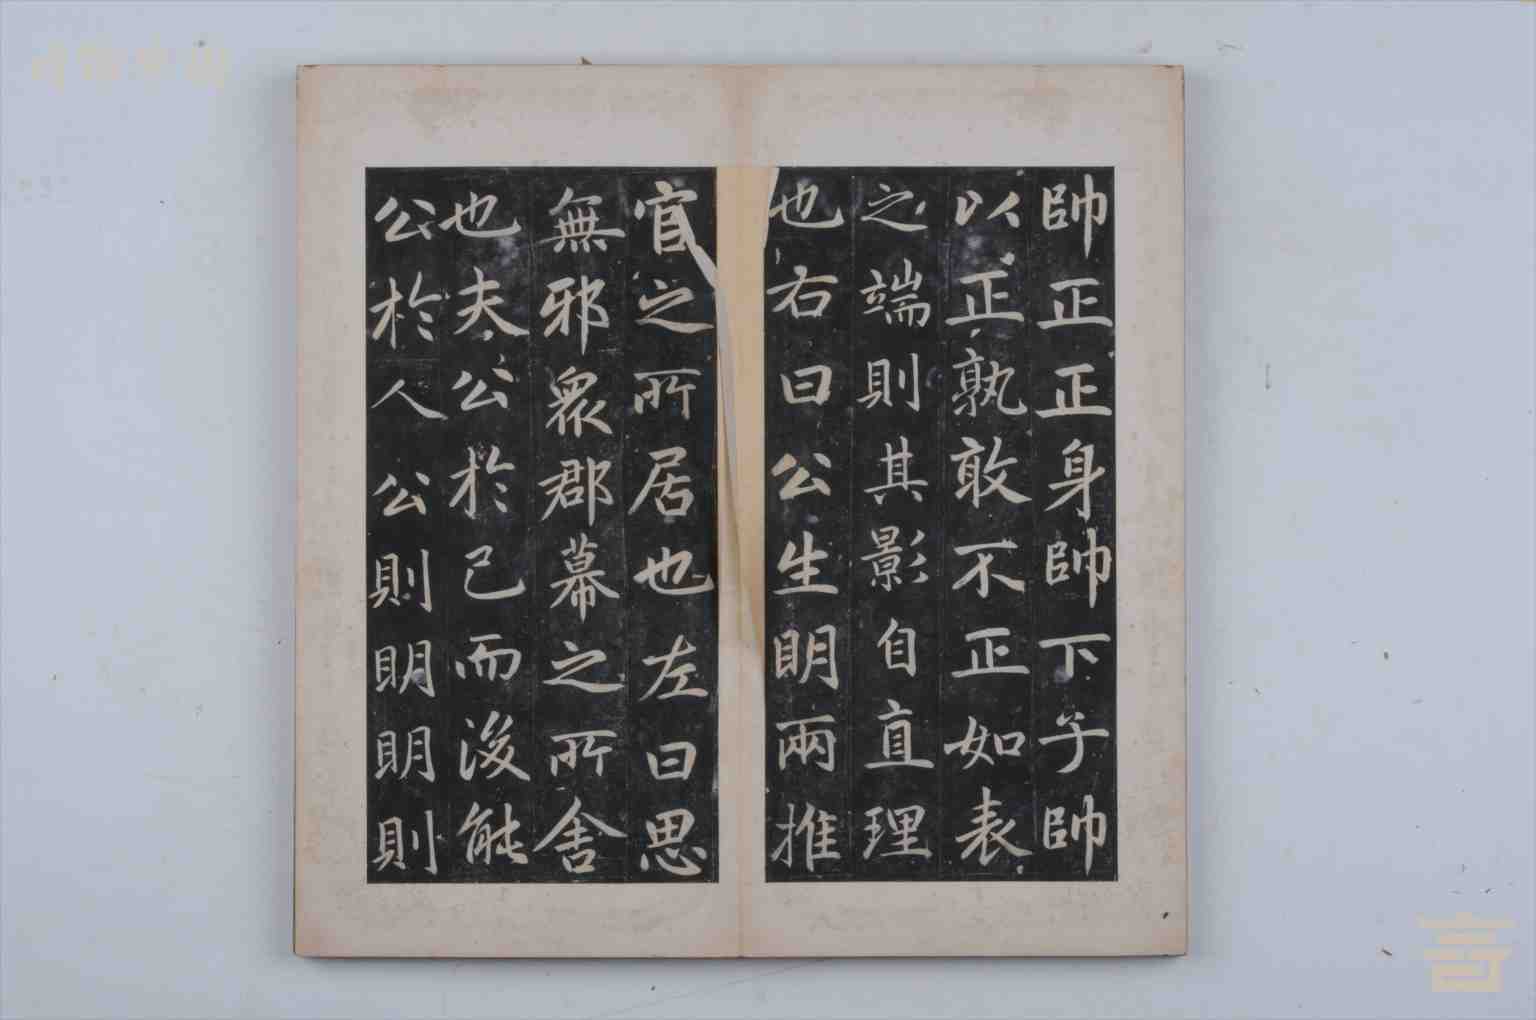 帥正正身帥下子帥
以正孰敢不正如表
之端則其影自直理
也右曰公生明兩推
官之所居也左曰思
無邪眾郡幕之所舍
也夫公於己而後能
公於人公則明明則